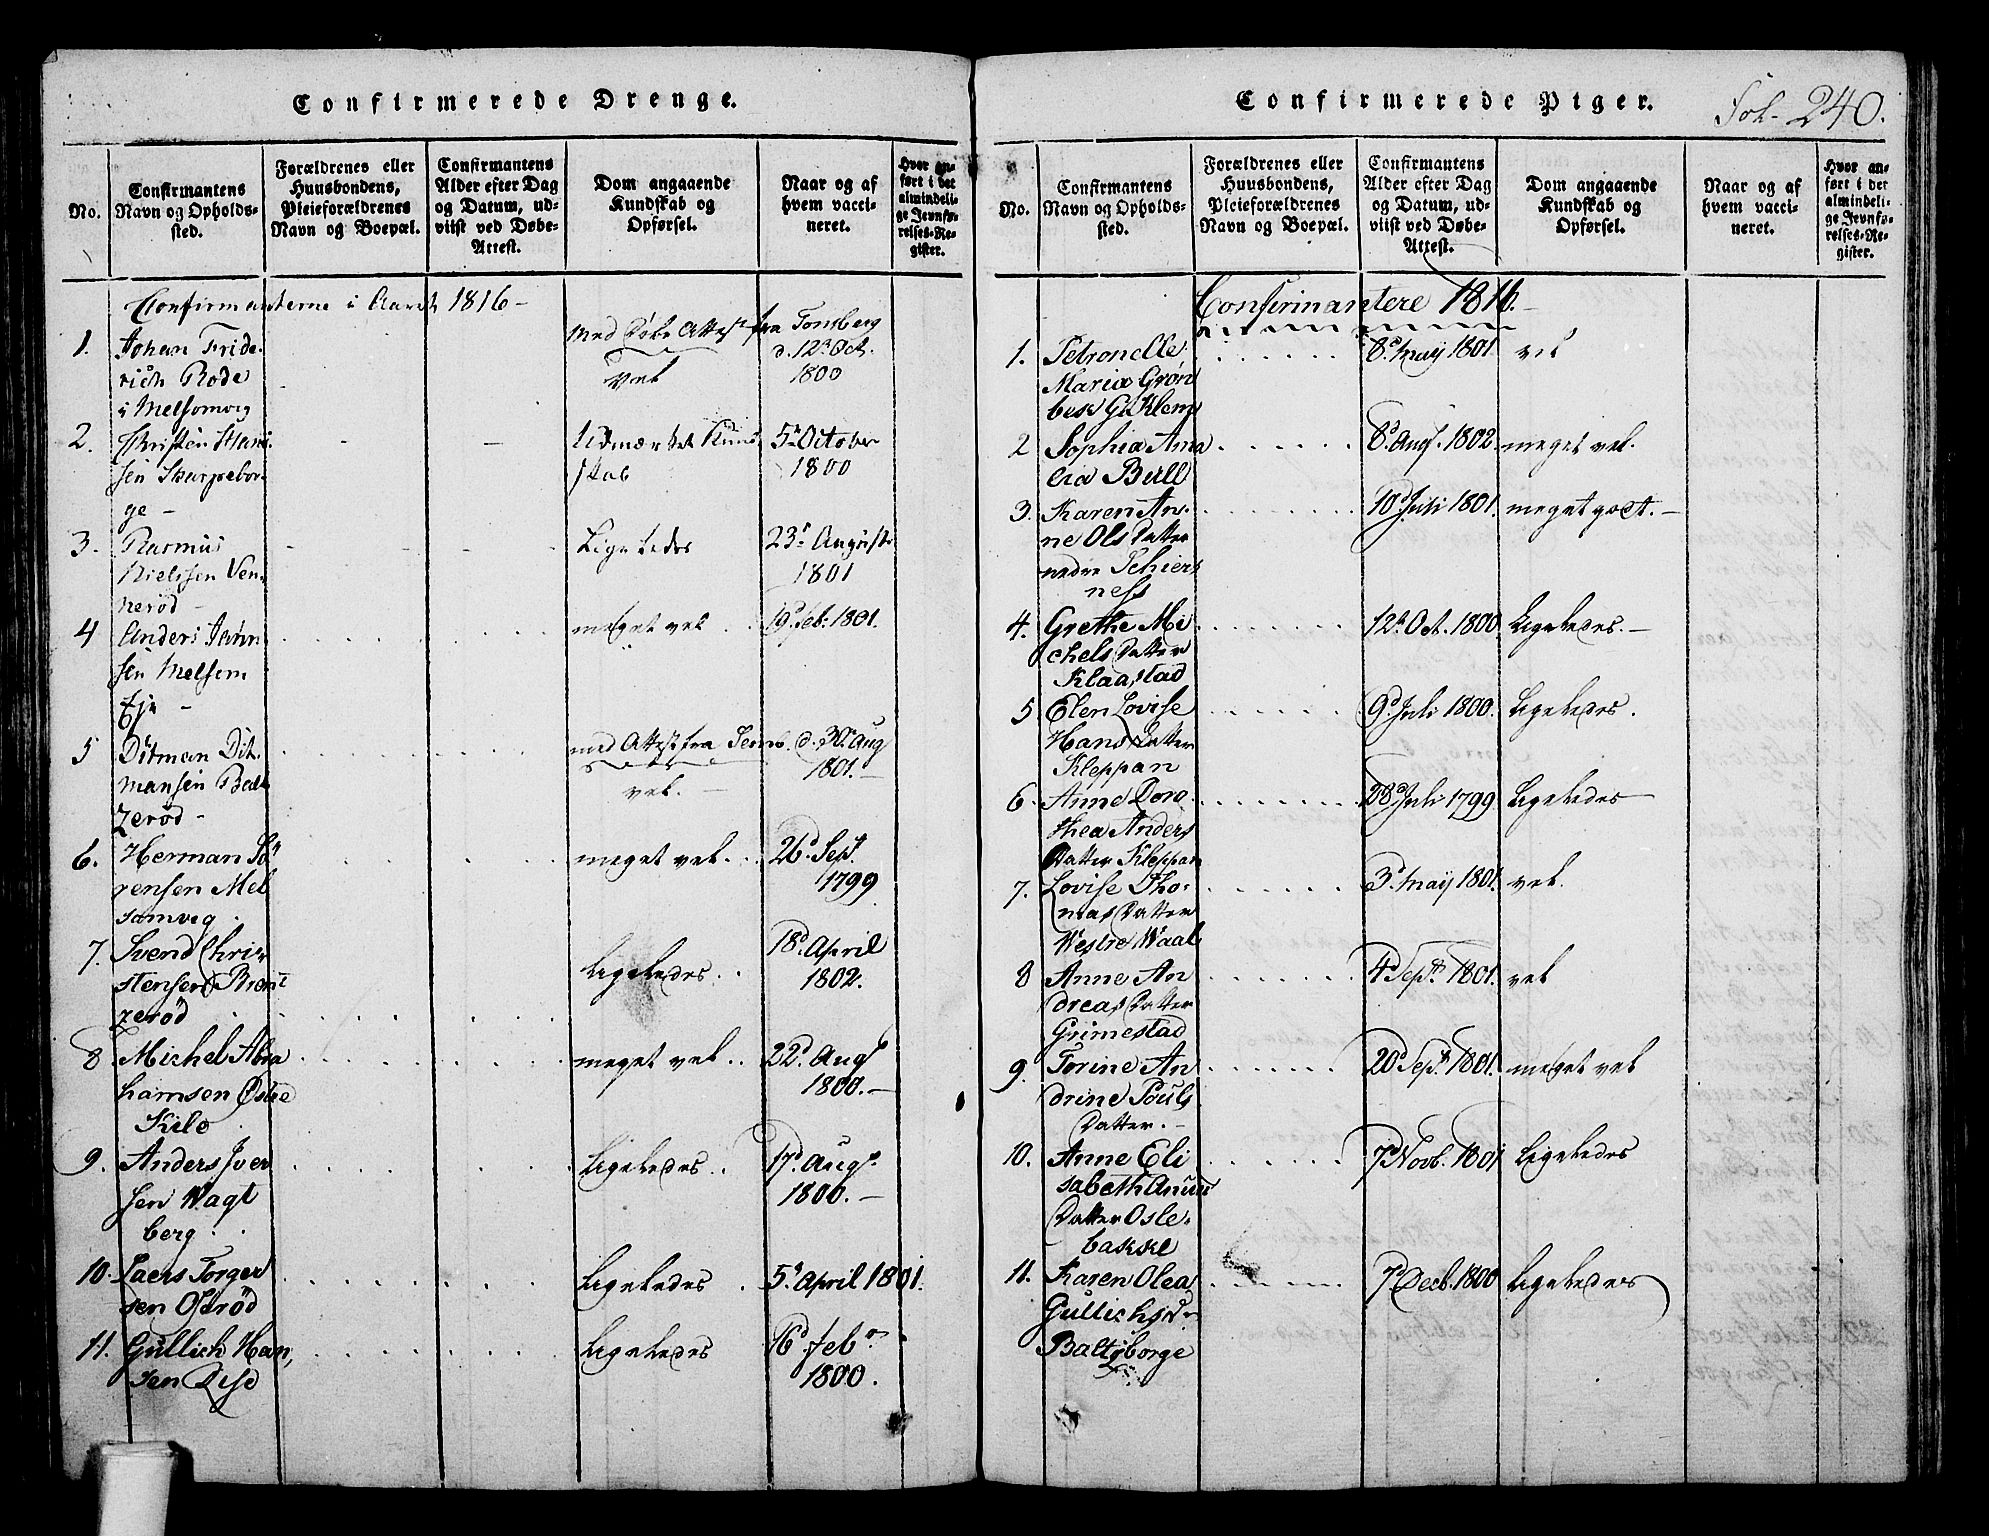 Confirmerede Drenge.
No.
Confirmantens Navn og Opholds-sted.
Forældrenes eller Huusbondens, Pleieforældrenes Navn og Boepæl.
Confirmantens Alder efter Dag og Datum, ud-viist ved Døbe-Attest.
Dom angaaende Kundskab og Opførsel.
Naar og af hvem vacci-neret.
Hvor an-ført i det almindeli-ge Jevnfø-relses-Re-gister.
Confirmanterne i Aaret 1816 -
1. Johan Fride-
rich Rode
i Melsomvig
Med Døbe Attest fra Tonsberg
d. 12te Oct.
1800
Vel
2. Christen Hans
sen Skarpebor-
ge -
Udmærket Kund
skab
5te October
1800
3. Rasmus
Nielssen Ven-
nerød -
Ligeledes
23de August
1801
4 Anders Jahn-
sen Melsom
Eje -
meget vel
19d Feb. 1801.
5 Ditman Dit-
mansen
zerød -
med Attest fra Semb. d. 30te Aug
1801. -
vel. -
6. Herman Sö
rensen Mel
somvig
meget vel.
26d Sept.
1799
7. Svend Chri-
stensen
zerød
Ligeledes.
18d April
1802.
8 Michel Abra
hamsen Østre
Kile
meget vel.
22d Augs
1800. -
9. Anders Iver
sen Wagt
berg
Ligeledes.
17d Augs.
1800. -
10. Laers Torger
sen Ofsrød
Ligeledes
5te April 1801.
11. Gullich Han,
sen
Ligeledes
16d Feb.
1800.
Confirmerede Piger.
Fol. 240.
No.
Confirmantens Navn og Opholds-sted.
Forældrenes eller Huusbondens, Pleieforældrenes Navn og Boepæl.
Confirmantens Alder efter Dag og Datum, ud-viist ved Døbe-Attest.
Dom angaaende Kundskab og Opførsel.
Naar og af hvem vacci-neret.
Hvor an-ført i det almindeli-ge Jevnfø-relses-Re-gister.
Confirmantere 1816. -
1. Petronelle
Maria Grøn
bek Giklem
8d. may 1801 vel
2 Sophia Ama
lia Bull
8d Aug. 1802. meget vel.
3. Karen An-
ne Ols Datter
nedre Schiers
ness
10d Juli 1801. meget godt. -
4. Grethe Mi
chels Datter
Klaastad
12te Oct. 1800 Ligeledes. -
5 Elen Lovise
Hans Datter
Kleppan
9d Juli 1800. Ligeledes.
6. Anne Doro
thea Anders
Datter Kleppan
28d Juli 1799 Ligeledes
7. Lovise Tho-
mas Datter
Westre Waal
3d may 1801. vel.
8 Anne An
dreas Datter
Grimestad
4d Sept. 1801. vel
9. Torine An
drine Pouls
Datter. -
20d Sept. 1801. meget vel
10. Anne Eli
sabeth
Datter Osle-
bakke
7d Novb. 1801 Ligeledes
11. Karen Olea
Gullichsd.
Baltzborge
7d Decb. 1800 Ligeledes